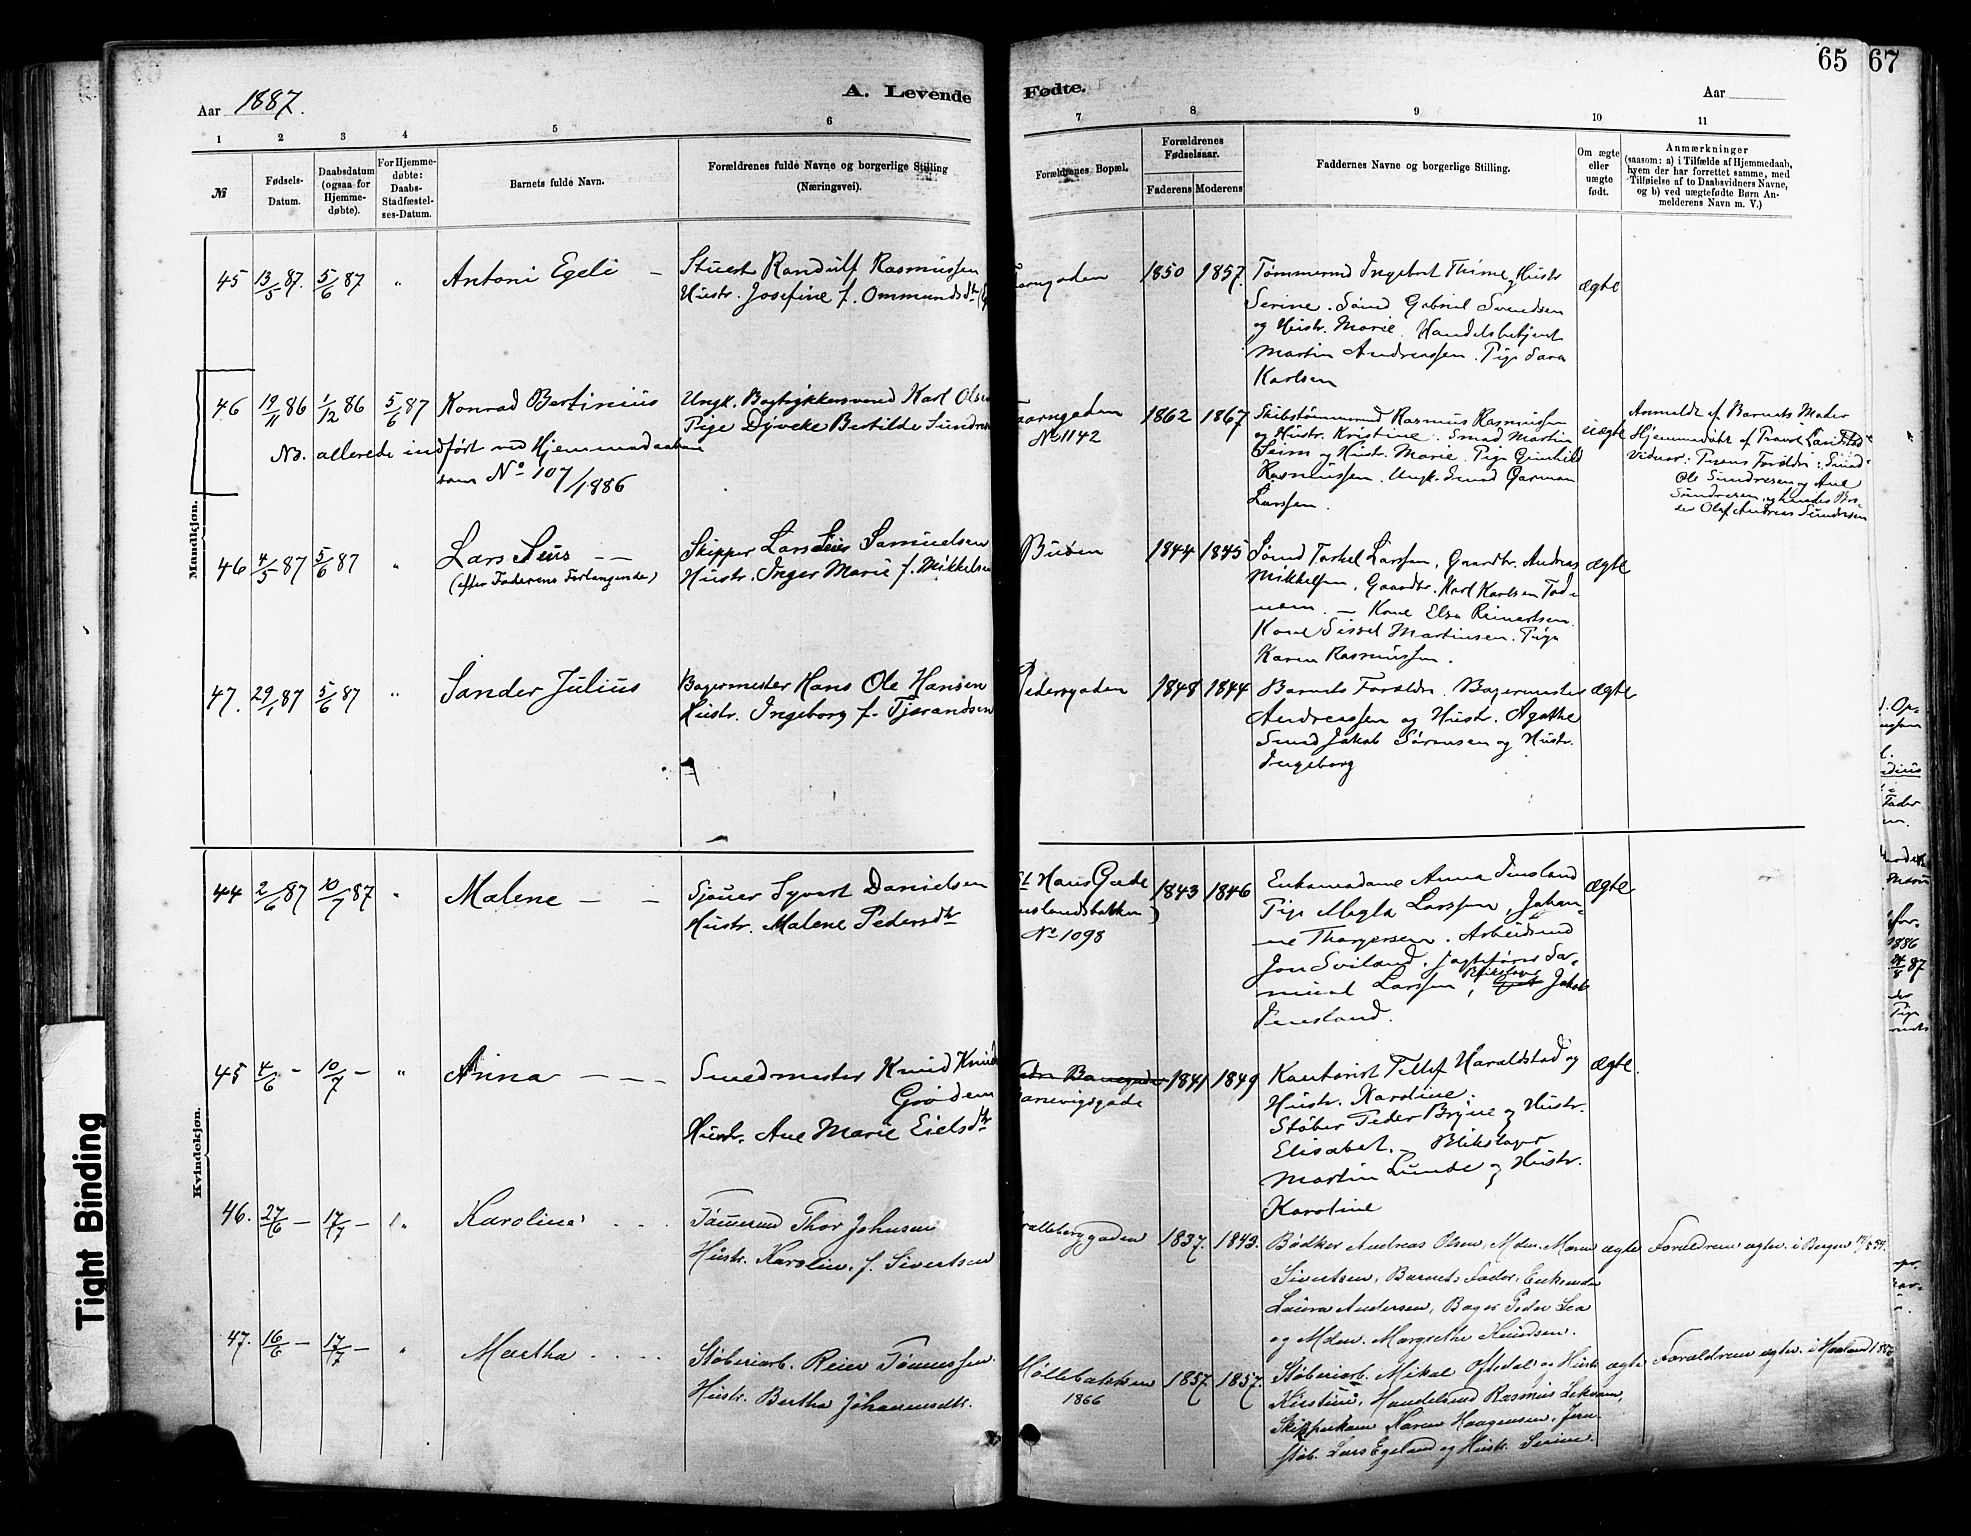 65 67
Aar 1887. A. Levende Fødte. Aar
1 2 3 4 5 6 7 8 9 10 11
№
Fødsels-Datum.
Daabsdatum (ogsaa for Hjemme-døbte).
For Hjemme-døbte: Daabs-Stadfæstel-ses-Datum.
Barnets fulde Navn.
Forældrenes fulde Navne og borgerlige Stilling (Næringsvei).
Forældrenes Bopæl.
Forældrenes Fødselsaar.
Faderens Moderens
Faddernes Navne og borgerlige Stilling.
Om ægte eller uægte født.
Anmærkninger
(saasom: a) i Tilfælde af Hjemmedaab,
hvem der har forrettet samme, med
Tilføielse af to Daabsvidners Navne,
og b) ved uægtefødte Børn An-
melderens Navn m. V.)
Mandkjøn.
45 13/5 87. 5/6 87 " Antoni Egeli
Stuert Randulf Rasmussen
Hustr. Josefine f. Ommundsdtr
1850 1857.
Tømmermd Ingebret Thime, Hustr
Serine. Sømd Gabriel Svendsen
og Hustr. Marie. Handelsbetjent
Martin Andreassen. Pige Sara
Karlsen
ægte
46 19/11 86 1/12 86 5/6 87 Konrad Bertinius
Nb. allerede indført ved Hjemmedaaben
som No 107/1886
Ungk. Bogtrykkersvend Karl Olsen
Pige Dyveke Bertilde Sundresen
No 1142
1862 1867
Skibstømmermd Rasmus Rasmussen
og Hustr. Kristine. Smed Martin
Seim og Hustr. Marie. Pige Gunhild
Rasmussen. Ungk. Smed Garman
Larssen.
uægte
Anmeldt af Barnets Moder
Hjemmedøbt af
vidner: Pigens Forældre: Smed
Ole Sundresen og Ane
Sundresen, og hendes Bro-
der Olaf Andreas Sundresen
46 4/5 87 5/6 87 " Lars Seus
(efter Faderens Forlangende)
Skipper Lars Seus Samuelsen
Hustr. Inger Marie f. Mikkelsen
Buøen
1844 1845
Sømd Torkel Larssen, Gaardbr. Andreas
Mikkelsen, Gaardbr. Karl Karlsen Tad-
nem. — Kone Elsa Reinertsen.
Kone Sissel Martinsen. Pige
Karen Rasmussen.
ægte
47. 29/1 87 5/6 87 " Sander Julius
Bagermester Hans Ole Hansen
Hustr. Ingeborg f. Tjerandsen
Pedersgaden
1848 1844
Barnets Forældre. Bagermester
Andreassen og Hustr. Agathe
Smed Jakob Sørensen og Hustr.
Ingeborg
ægte
Kvindekjøn.
44 2/6 87 10/7 87 " Malene
Sjøuer Syvert Danielsen
Hustr. Malene Pedersdtr
St. Hans Gade
No 1098
1843 1846
Enkemadame Anna Tinsland
Pige Magla Larssen, Johan-
ne Thorgersen. Arbeidsmd
Jon Sviland. Jagtefører Sa-
muel Larssen, Blikslager Jakob
Tinsland.
ægte
45 4/6 - 10/7 - " Anna
Smedmester Knud Knudsen
Grødem
Hustr. Ane Marie Eielsdtr
Banevigsgade
1841 1849
Kontorist Tellef Haraldstad og
Hustr. Karoline.
Støber Peder Bryne og Hustr.
Elisabet. Blikslager
Martin Lunde og Hustr.
Karoline
ægte
46. 27/6 - 17/7 - " Karoline
Tømmermd Thor Johnsen
Hustr. Karoline f. Sivertsen
1837. 1843.
Bødker Andreas Olsen, Mdm. Maren
Sivertsen, Barnets Fader, Enkemdm
Laura Andersen, Bager Peder Lea
og Mdm. Margrethe Knudsen.
ægte
Forældrene ægtev. i Bergen
47. 16/6 - 17/7 - " Martha
Støberiarb. Reier Tønnessen
Hustr. Bertha Johannesdtr.
Møllebakken
1866
1857. 1857.
Støberiarb. Mikal Oftedal og Hustr
Kirstine, Handelsmd Rasmus Leksam,
Skipperkone Karen Haagensen, Jern-
støb. Lars Egeland og Hustr. Serine.
ægte
Forældrene ægtev. i Haaland
Tight Binding